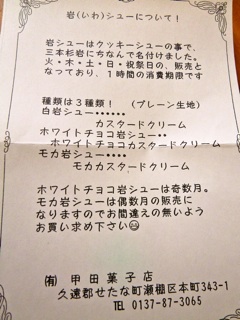 岩(いわ)シューについて!
岩シューはクッキーシューの事で、
三本杉岩にちなんで名付けました。
火・木・土・日・祝祭日の、販売と
なっており、1時間の消費期限です
種類は3種類! (プレーン生地)
白岩シュー・・・・・・
カスタードクリーム
ホワイトチョコ岩シュー・・
ホワイトチョコカスタードクリーム
モカ岩シュー・・・・
モカカスタードクリーム
ホワイトチョコ岩シューは奇数月。
モカ岩シューは偶数月の販売に
なりますのでお間違えの無いよう
お買い求め下さい😄
㈲ 甲田菓子店
久遠郡せたな町瀬棚区本町343-1
TEL 0137-87-3065